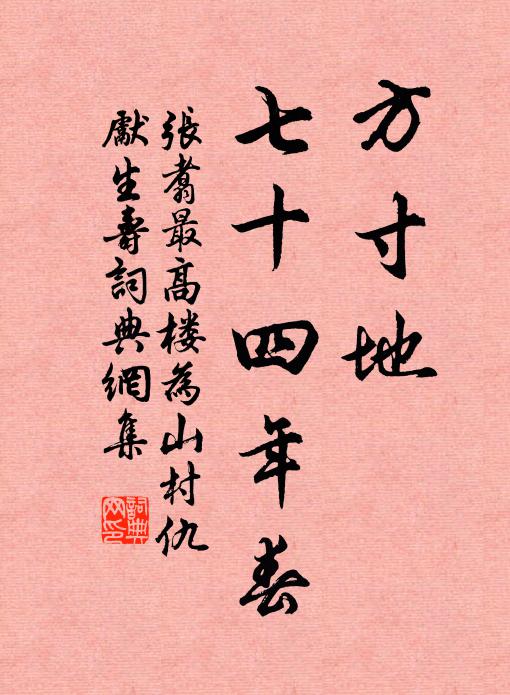 方寸地
七十四年春
張翥最高楼為山村仇
獻生壽詞典網集
詞典網印